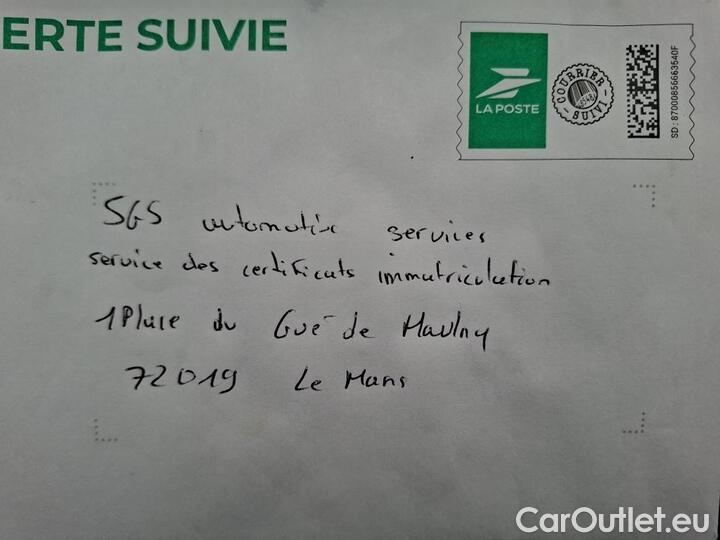 ERTE SUIVIE
LA POSTE
COURRIER
SUIVI
SD : 87000856663540F
SGS automotive services
service des certificats immatriculation
1 Place du Gué de Maulny
72019 Le Mans
CarOutlet.eu